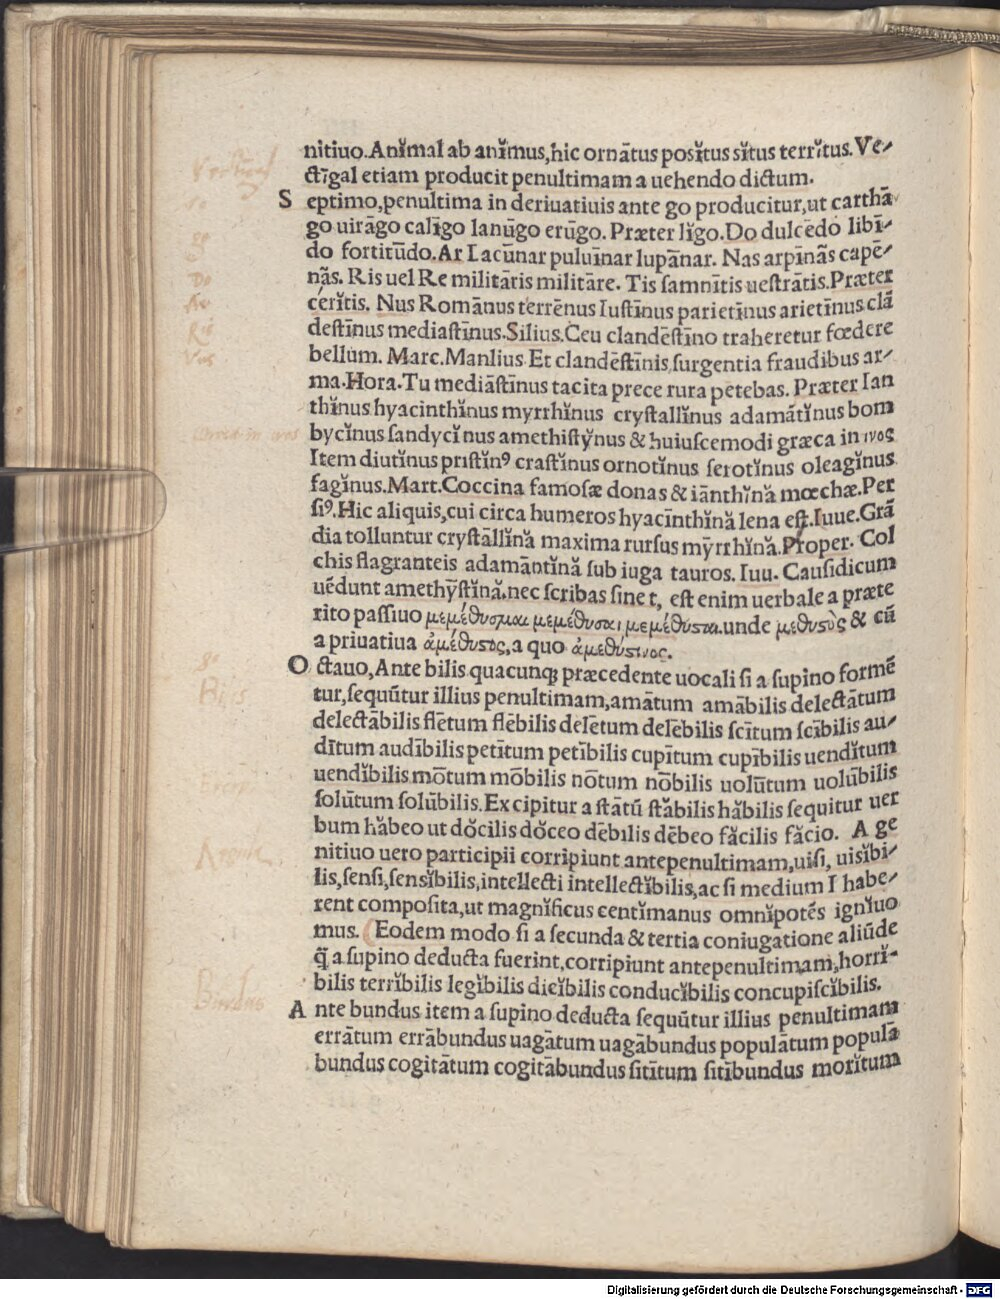 nitiuo.Anĭmal ab anĭmus,hic ornātus posĭtus sĭtus terrĭtus.Ve-
ctīgal etiam producit penultimam a uehendo dictum.
Septimo,penultima in deriuatiuis ante go producitur,ut carthā
go uirāgo calīgo lanūgo erūgo. Præter lĭgo.Do dulcēdo libī-
do fortitūdo.Ar Lacūnar puluīnar lupānar. Nas arpīnās capē-
nās. Ris uel Re militāris militāre. Tis samnītis uestrātis.Præter
cerĭtis. Nus Romānus terrēnus Iustīnus parietīnus arietīnus clā
destīnus mediastīnus.Silius.Ceu clandēstīno traheretur fœdere
bellum. Marc.Manlius Et clandēstīnis surgentia fraudibus ar-
ma.Hora.Tu mediāstīnus tacita prece rura petebas. Præter Ian
thĭnus hyacinthĭnus myrrhĭnus crystallĭnus adamātĭnus bom
bycĭnus sandycĭnus amethistẏnus & huiuscemodi græca in ινος
Item diutĭnus pristĭnꝰ crastĭnus ornotĭnus serotĭnus oleagĭnus
fagĭnus.Mart.Coccina famosæ donas & iānthĭnă mœchæ.Per
siꝰ.Hic aliquis,cui circa humeros hyacīnthĭnă lena est.Iuue.Grā
dia tolluntur crystāllĭnă maxima rursus mȳrrhĭnă.Proper. Col
chis flagranteis adamāntĭnă sub iuga tauros. Iuu. Causidicum
uēdunt amethȳstĭnă,nec scribas sine t, est enim uerbale a præte
rito passiuo μεμέθυσμαι μεμέθυσαι μεμέθυσται.unde μεθυσὺς & cū
a priuatiua ἀμέθυσος,a quo ἀμεθύστινος.
Octauo,Ante bilis quacunqꝫ præcedente uocali si a supino formē
tur,sequūtur illius penultimam,amātum amābilis delectātum
delectābilis flētum flēbilis delētum delēbilis scītum scībilis au-
dītum audībilis petītum petībilis cupītum cupībilis uendĭtum
uendĭbilis mōtum mōbilis nōtum nōbilis uolūtum uolūbilis
solūtum solūbilis.Excipitur a stātū stăbilis hăbilis sequitur uer
bum hăbeo ut dŏcilis dŏceo dēbilis dēbeo făcilis făcio. A ge
nitiuo uero participii corripiunt antepenultimam,uisi, uisĭbi-
lis,sensi,sensĭbilis,intellecti intellectĭbilis,ac si medium I habe-
rent composita,ut magnĭficus centĭmanus omnĭpotēs ignĭuo
mus. (Eodem modo si a secunda & tertia coniugatione aliūde
q̄ a supino deducta fuerint,corripiunt antepenultimam,horrĭ-
bilis terrĭbilis legĭbilis dicĭbilis conducĭbilis concupiscĭbilis.
Ante bundus item a supino deducta sequūtur illius penultimam
errātum errābundus uagātum uagābundus populātum populā
bundus cogitātum cogitābundus sitītum sitībundus morĭtum
Digitalisierung gefördert durch die Deutsche Forschungsgemeinschaft - DFG